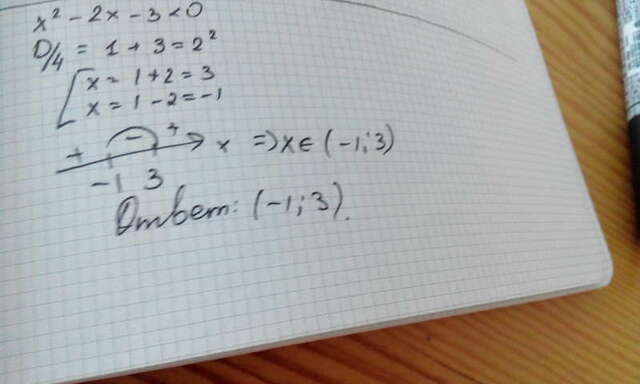 x² - 2x - 3 < 0
D/4 = 1 + 3 = 2²
[ x = 1 + 2 = 3
x = 1 - 2 = -1
+ - + x => x ∈ (-1; 3)
-1 3
Ответ: (-1; 3).